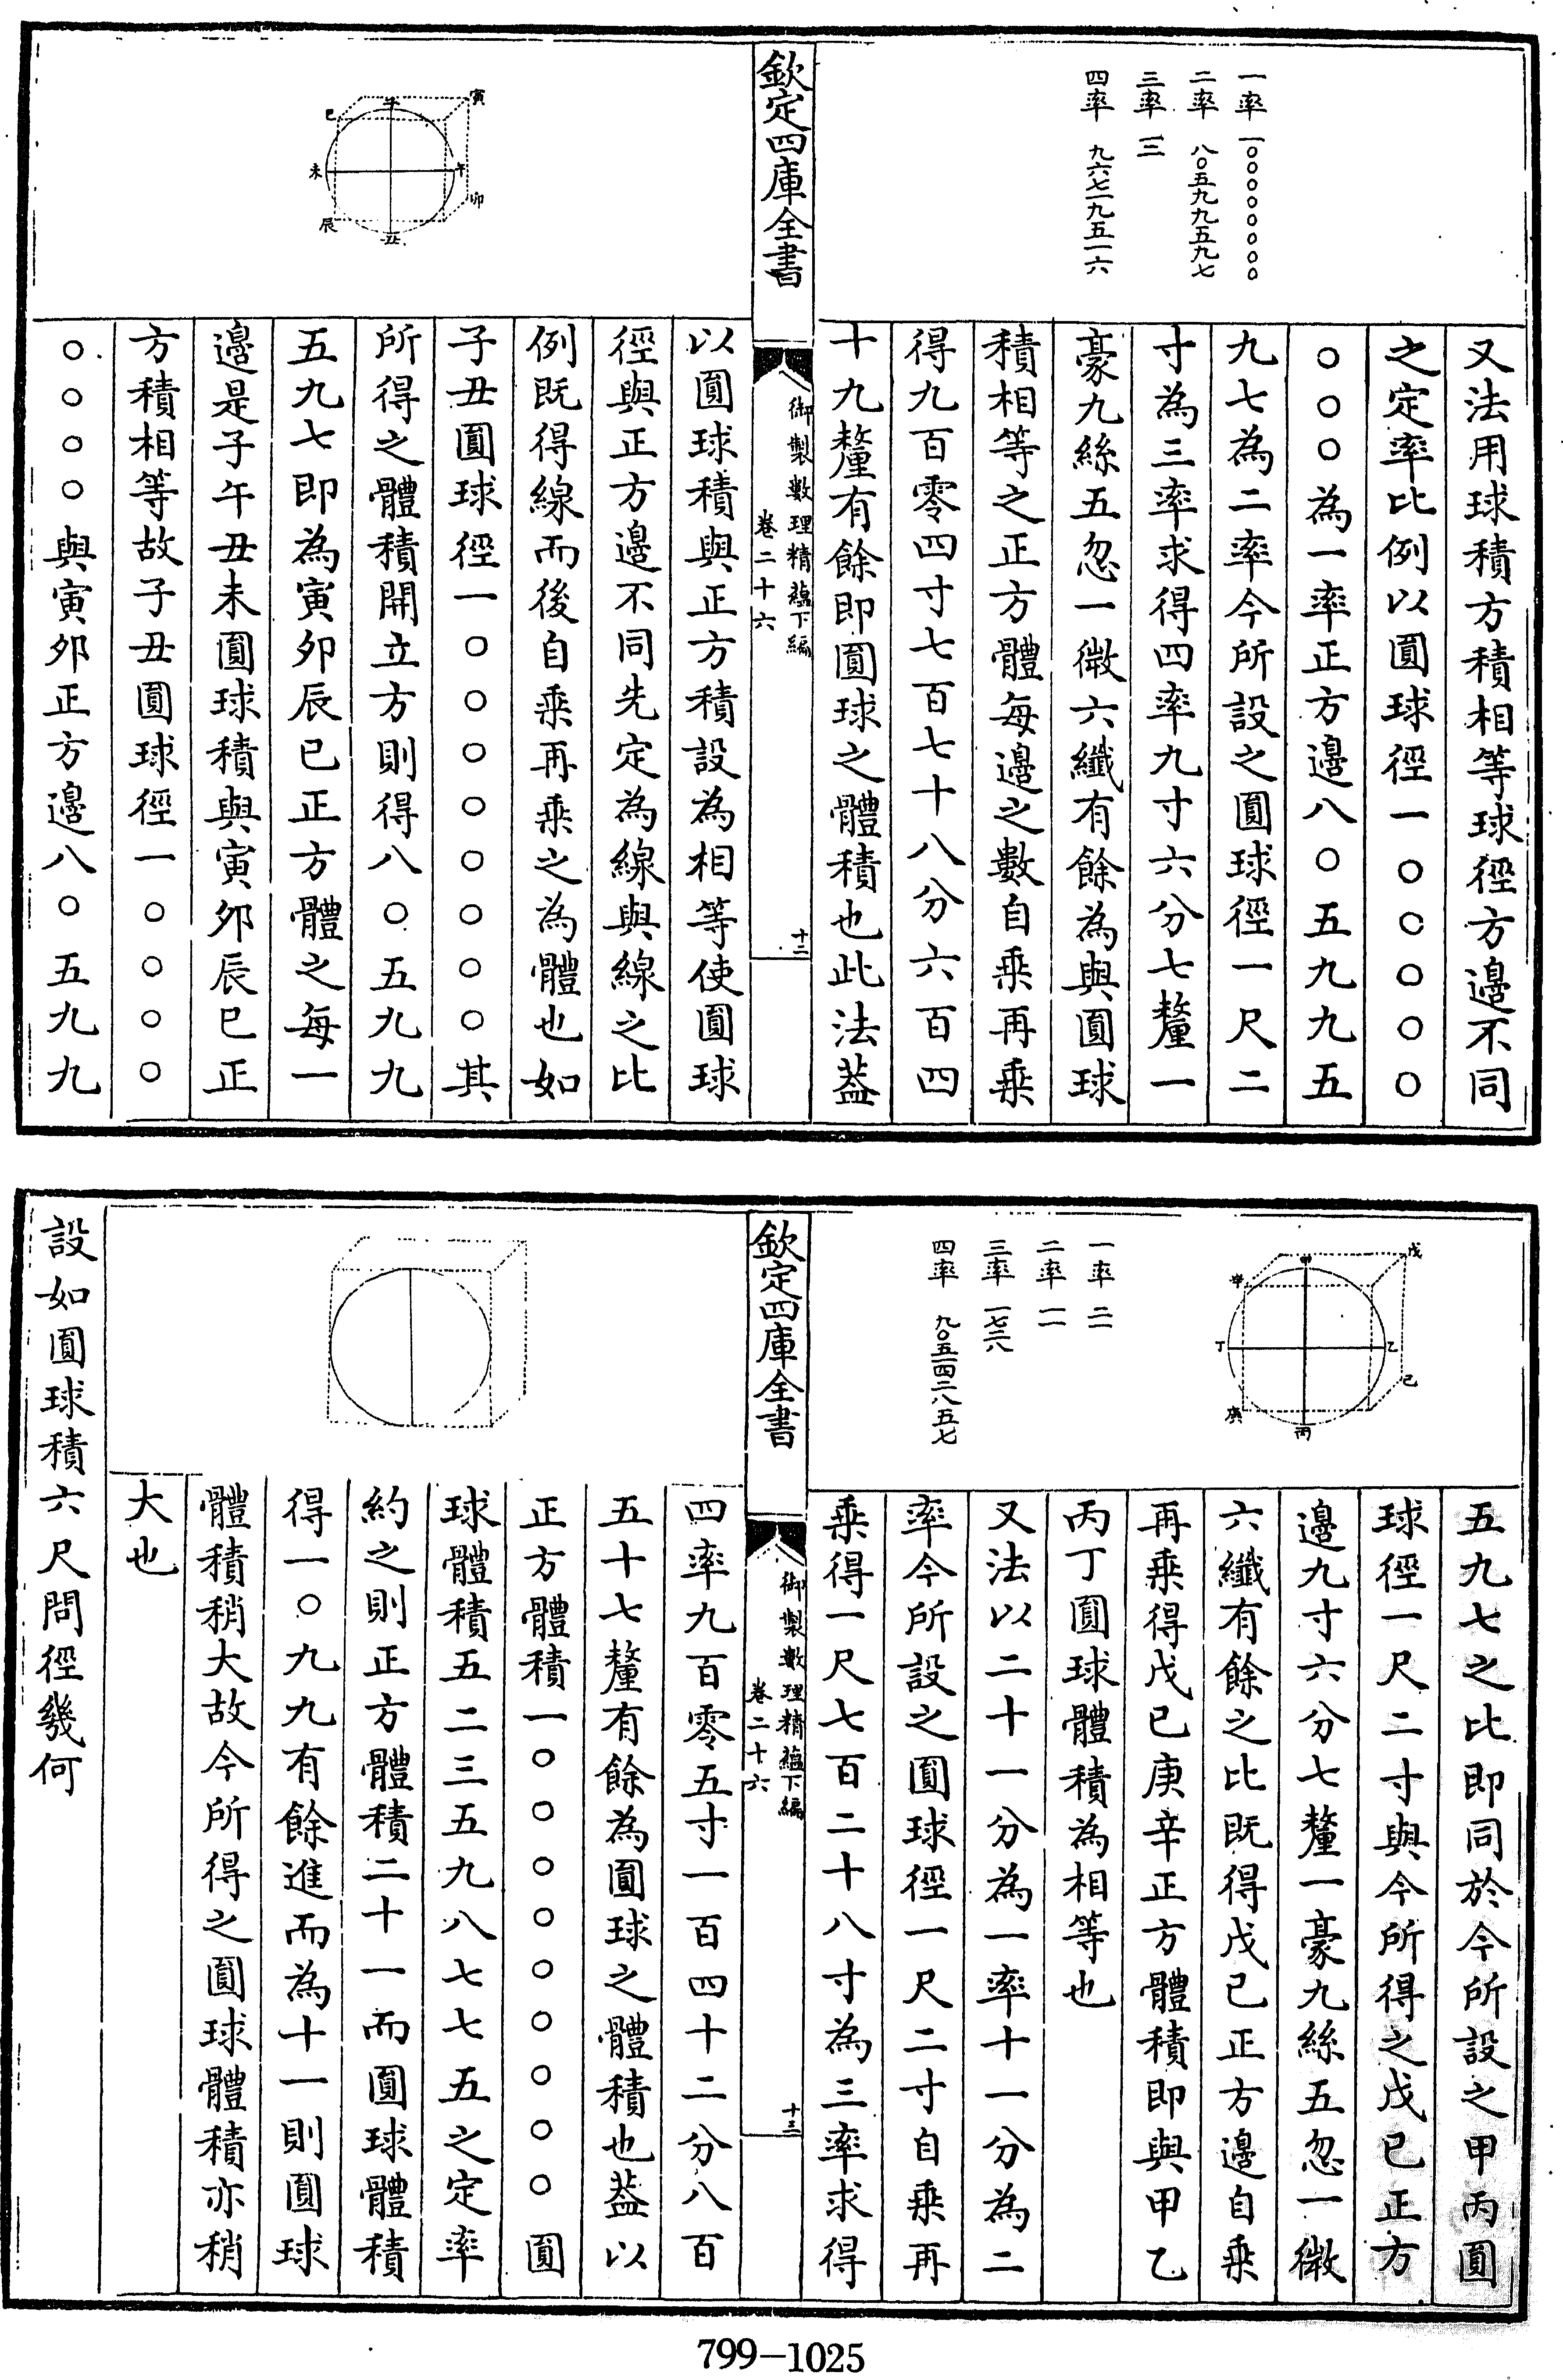 一率 一〇〇〇〇〇〇〇〇
二率 八〇五九九五九七
三率 一二
四率 九六七一九五一六
又法用球積方積相等球徑方邉不同
之定率比例以圓球徑一〇〇〇〇〇
〇〇〇為一率正方邉八〇五九九五
九七為二率今所設之圓球徑一尺二
寸為三率求得四率九寸六分七釐一
豪九絲五忽一微六纖有餘為與圓球
積相等之正方體每邉之數自乗再乗
得九百零四寸七百七十八分六百四
十九釐有餘即圓球之體積也此法葢
欽定四庫全書
御製數理精藴下編
卷二十六
十二
寅
子
巳
未
午
卯
辰
丑
以圓球積與正方積設為相等使圓球
徑與正方邉不同先定為線與線之比
例既得線而後自乗再乗之為體也如
子丑圓球徑一〇〇〇〇〇〇〇〇其
所得之體積開立方則得八〇五九九
五九七即為寅卯辰巳正方體之每一
邉是子午丑未圓球積與寅卯辰巳正
方積相等故子丑圓球徑一〇〇〇〇
〇〇〇〇與寅卯正方邉八〇五九九
戊
甲
辛
丁
乙
己
庚
丙
一率 二一
二率 一一
三率 一七二八
四率 九〇五一四二八五七
五九七之比即同於今所設之甲丙圓
球徑一尺二寸與今所得之戊己正方
邉九寸六分七釐一豪九絲五忽一微
六纖有餘之比既得戊己正方邉自乗
再乗得戊己庚辛正方體積即與甲乙
丙丁圓球體積為相等也
又法以二十一分為一率十一分為二
率今所設之圓球徑一尺二寸自乗再
乗得一尺七百二十八寸為三率求得
欽定四庫全書
御製數理精藴下編
卷二十六
十三
四率九百零五寸一百四十二分八百
五十七釐有餘為圓球之體積也葢以
正方體積一〇〇〇〇〇〇〇〇〇圓
球體積五二三五九八七七五之定率
約之則正方體積二十一而圓球體積
得一〇九九有餘進而為十一則圓球
體積稍大故今所得之圓球體積亦稍
大也
設如圓球積六尺問徑幾何
799-1025